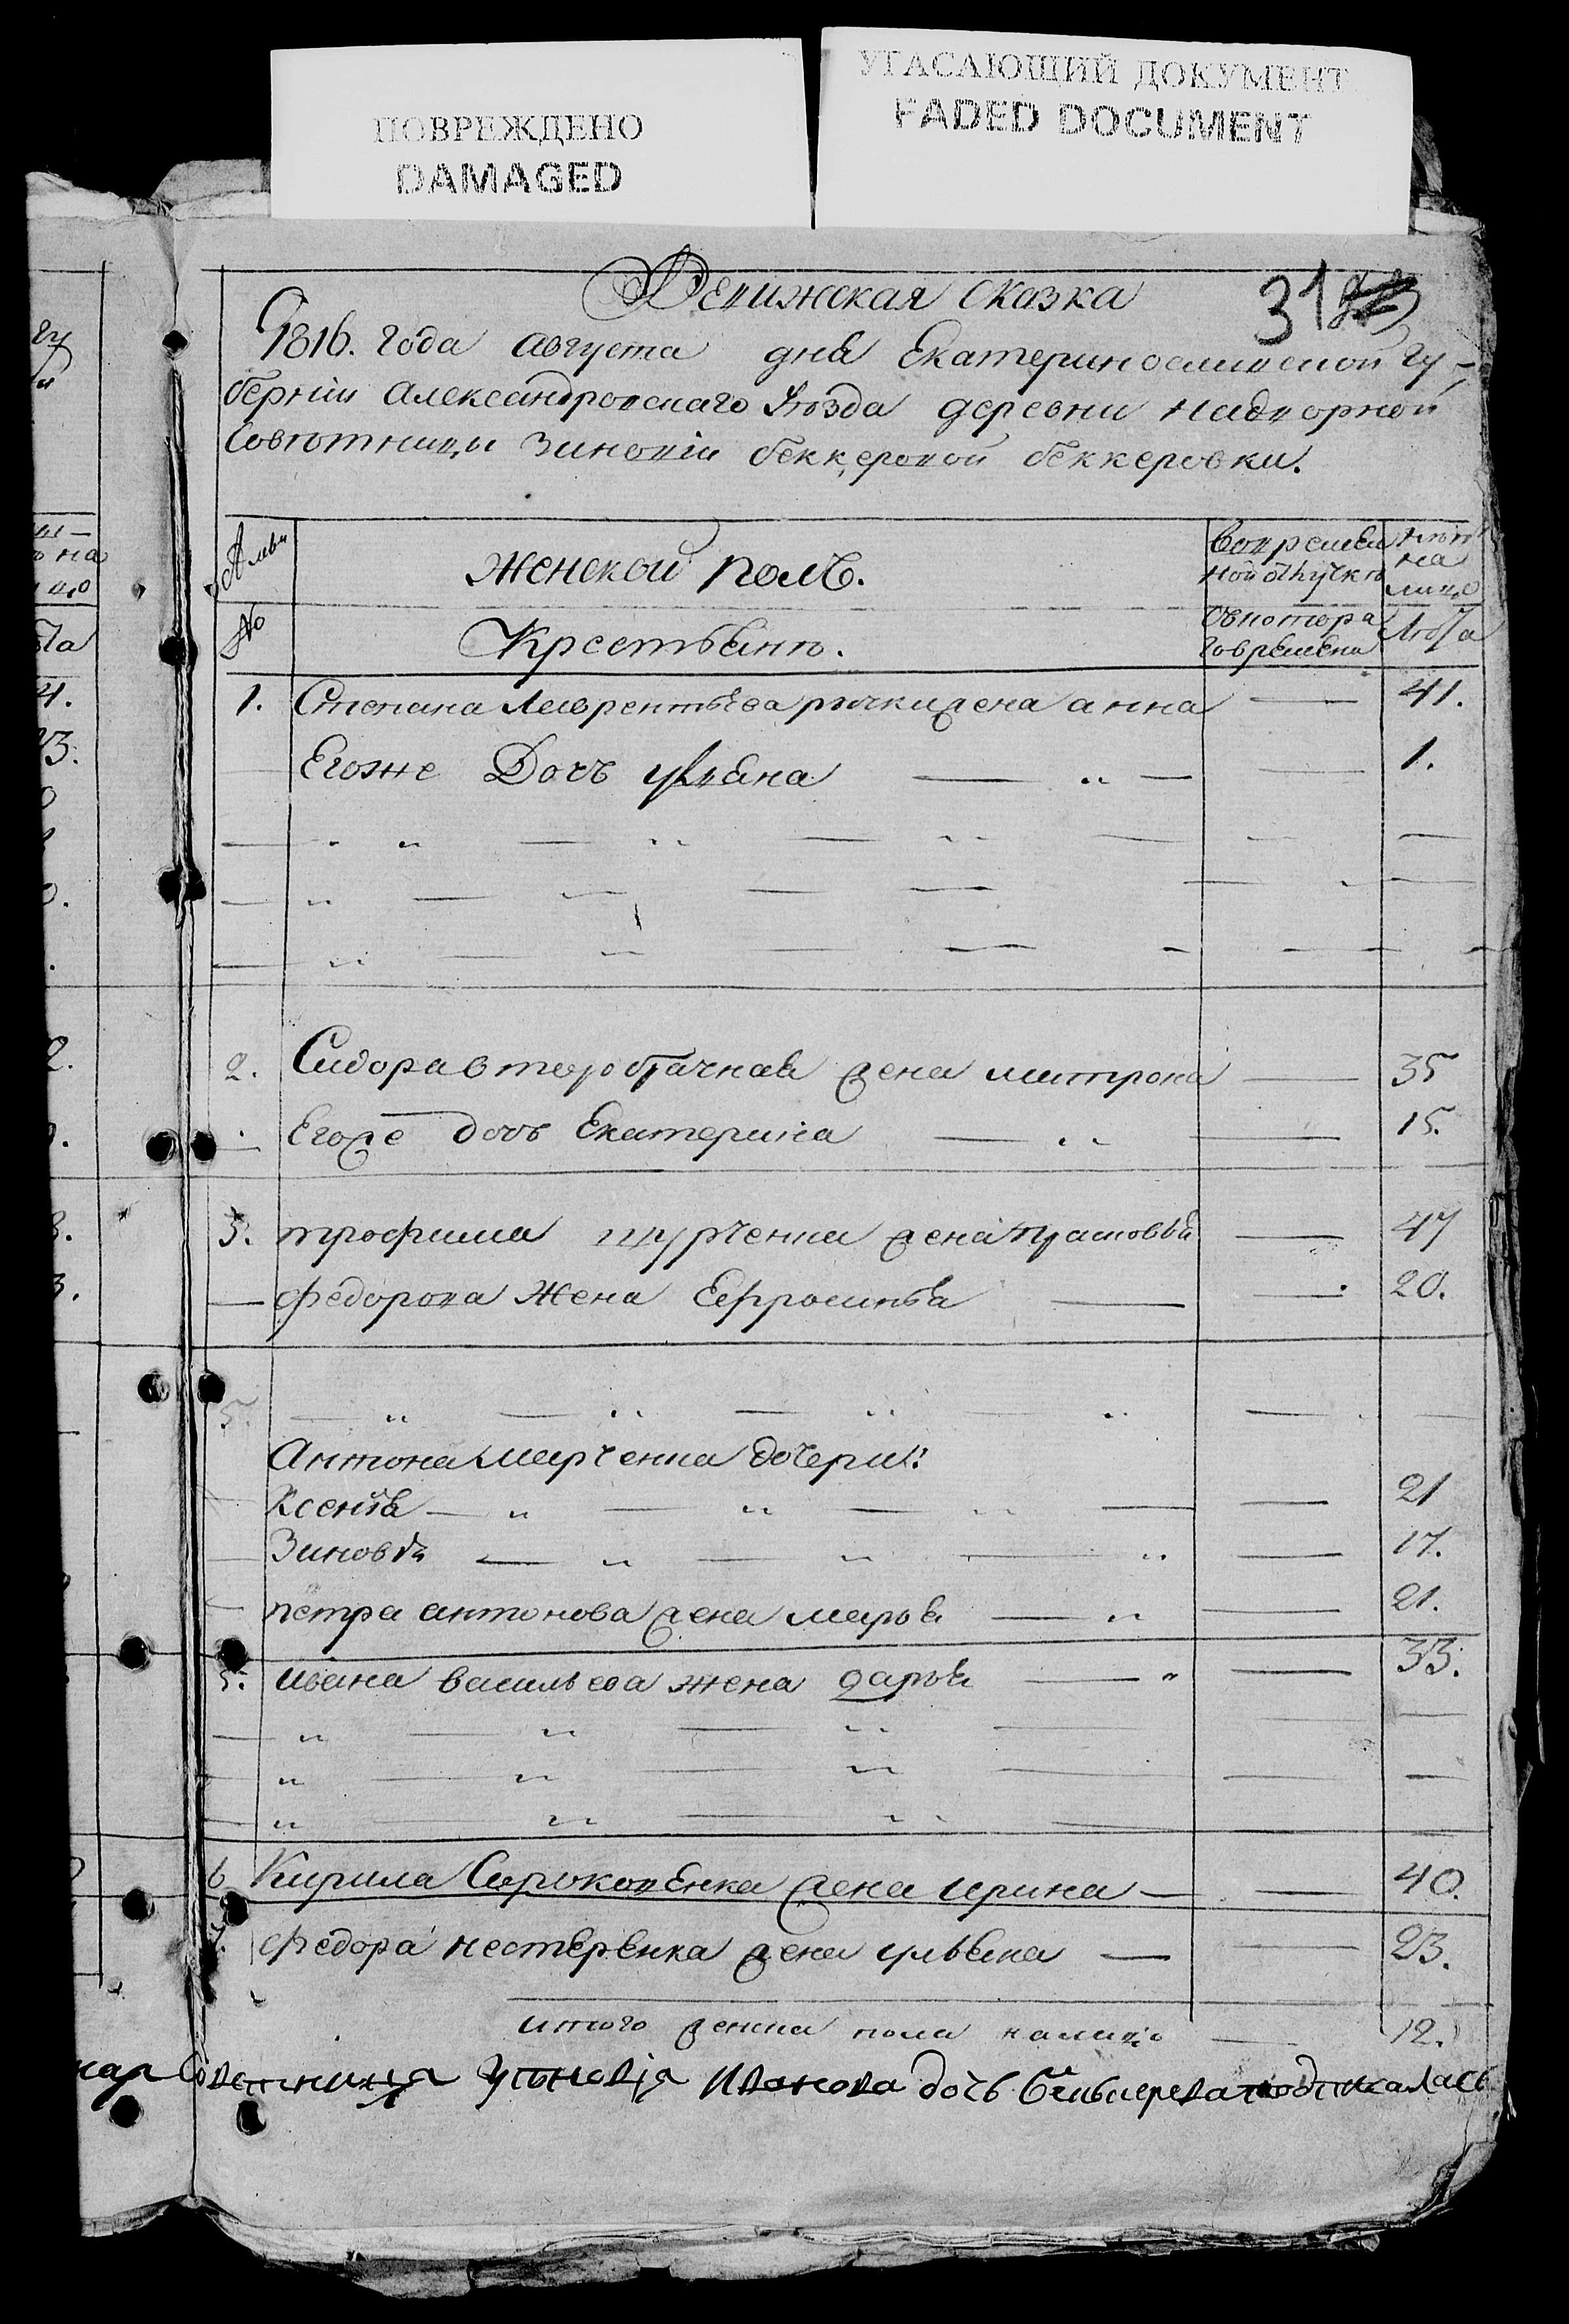 ПОВРЕЖДЕНО
DAMAGED
УГАСАЮЩИЙ ДОКУМЕНТ
FADED DOCUMENT
Ревижская сказка
31
1816. года августа дня Екатеринославской гу-
берніи александровскаго уѣзда деревни надворной
совѣтницы Зиновіи беккеровой беккеровки.
женской полъ.
во времен
ной отлучкѣ
на
лицо
№
Крестьянѣ.
съ котора
го времени
лѣта
1. Степана Лаврентьева жена анна — 41.
Егоже Дочъ ульяна — 1.
2. Сидора второбрачная жена матрона — 35
Егоже дочъ Екатерина — 15.
3. трофима жена Прасковья — 47
федорова жена Ефросинья — 20.
Антона марченка дочери:
Ксенья — 21
Зиновья — 17.
петра антонова жена марья — 21.
5. ивана васильева жена дарья — 33.
6 Кирила Сироковенка жена ирина — 40.
7. федора нестеренка жена ульяна — 23.
итого женска пола налицо — 12.
Советница Зиновія Иванова дочь подписалась